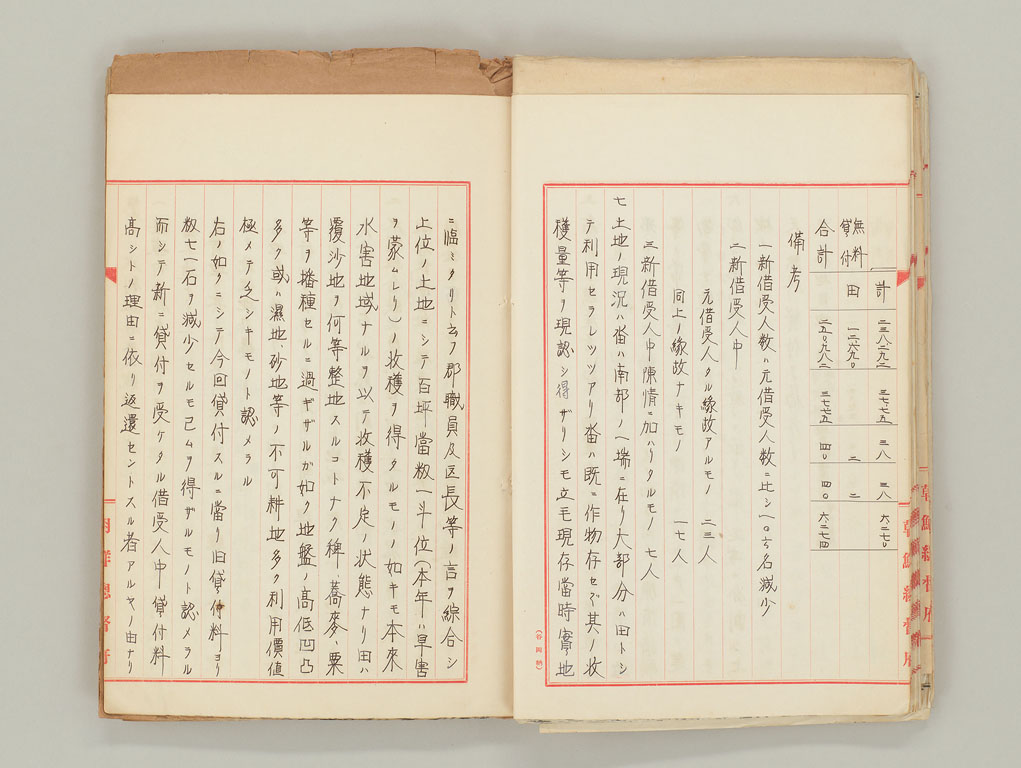 計 二三八二九二 三七七五 三八 三八 六二七〇
無料貸付 田 一二六九〇 二 二
合計 二五〇九八二 三七七五 四〇 四〇 六二七四
備考
一新借受人数ハ元借受人数ニ比シ一〇六名減少
二新借受人中
元借受人タル縁故アルモノ 二三人
同上ノ縁故ナキモノ 一七人
三新借受人中陳情ニ加ハリタルモノ 七人
七土地ノ現況ハ畓ハ南部ノ一端ニ在リ大部分ハ田トシ
テ利用セラレツツアリ畓ハ既ニ作物存セズ其ノ收
穫量等ヲ現認シ得ザリシモ立毛現存當時實地
(谷岡納)
朝鮮總督府
ニ臨ミタリト云フ郡職員及区長等ノ言ヲ綜合シ
上位ノ土地ニシテ百坪當籾一斗位(本年ハ旱害
ヲ蒙ムレリ)ノ收穫ヲ得タルモノノ如キモ本來
水害地域ナルヲ以テ收穫不定ノ状態ナリ田ハ
覆沙地ヲ何等整地スルコトナク稗、蕎麥、粟
等ヲ播種セルニ過ギザルガ如ク地盤ノ高低凹凸
多ク或ハ濕地、砂地等ノ不可耕地多ク利用價値
極メテ乏シキモノト認メラル
右ノ如クニシテ今回貸付スルニ當リ旧貸付料ヨリ
籾七一石ヲ減少セルモ己ムヲ得ザルモノト認メラル
而シテ新ニ貸付ヲ受ケタル借受人中貸付料
高シトノ理由ニ依リ返還セントスル者アルヤノ由ナリ
朝鮮總督府